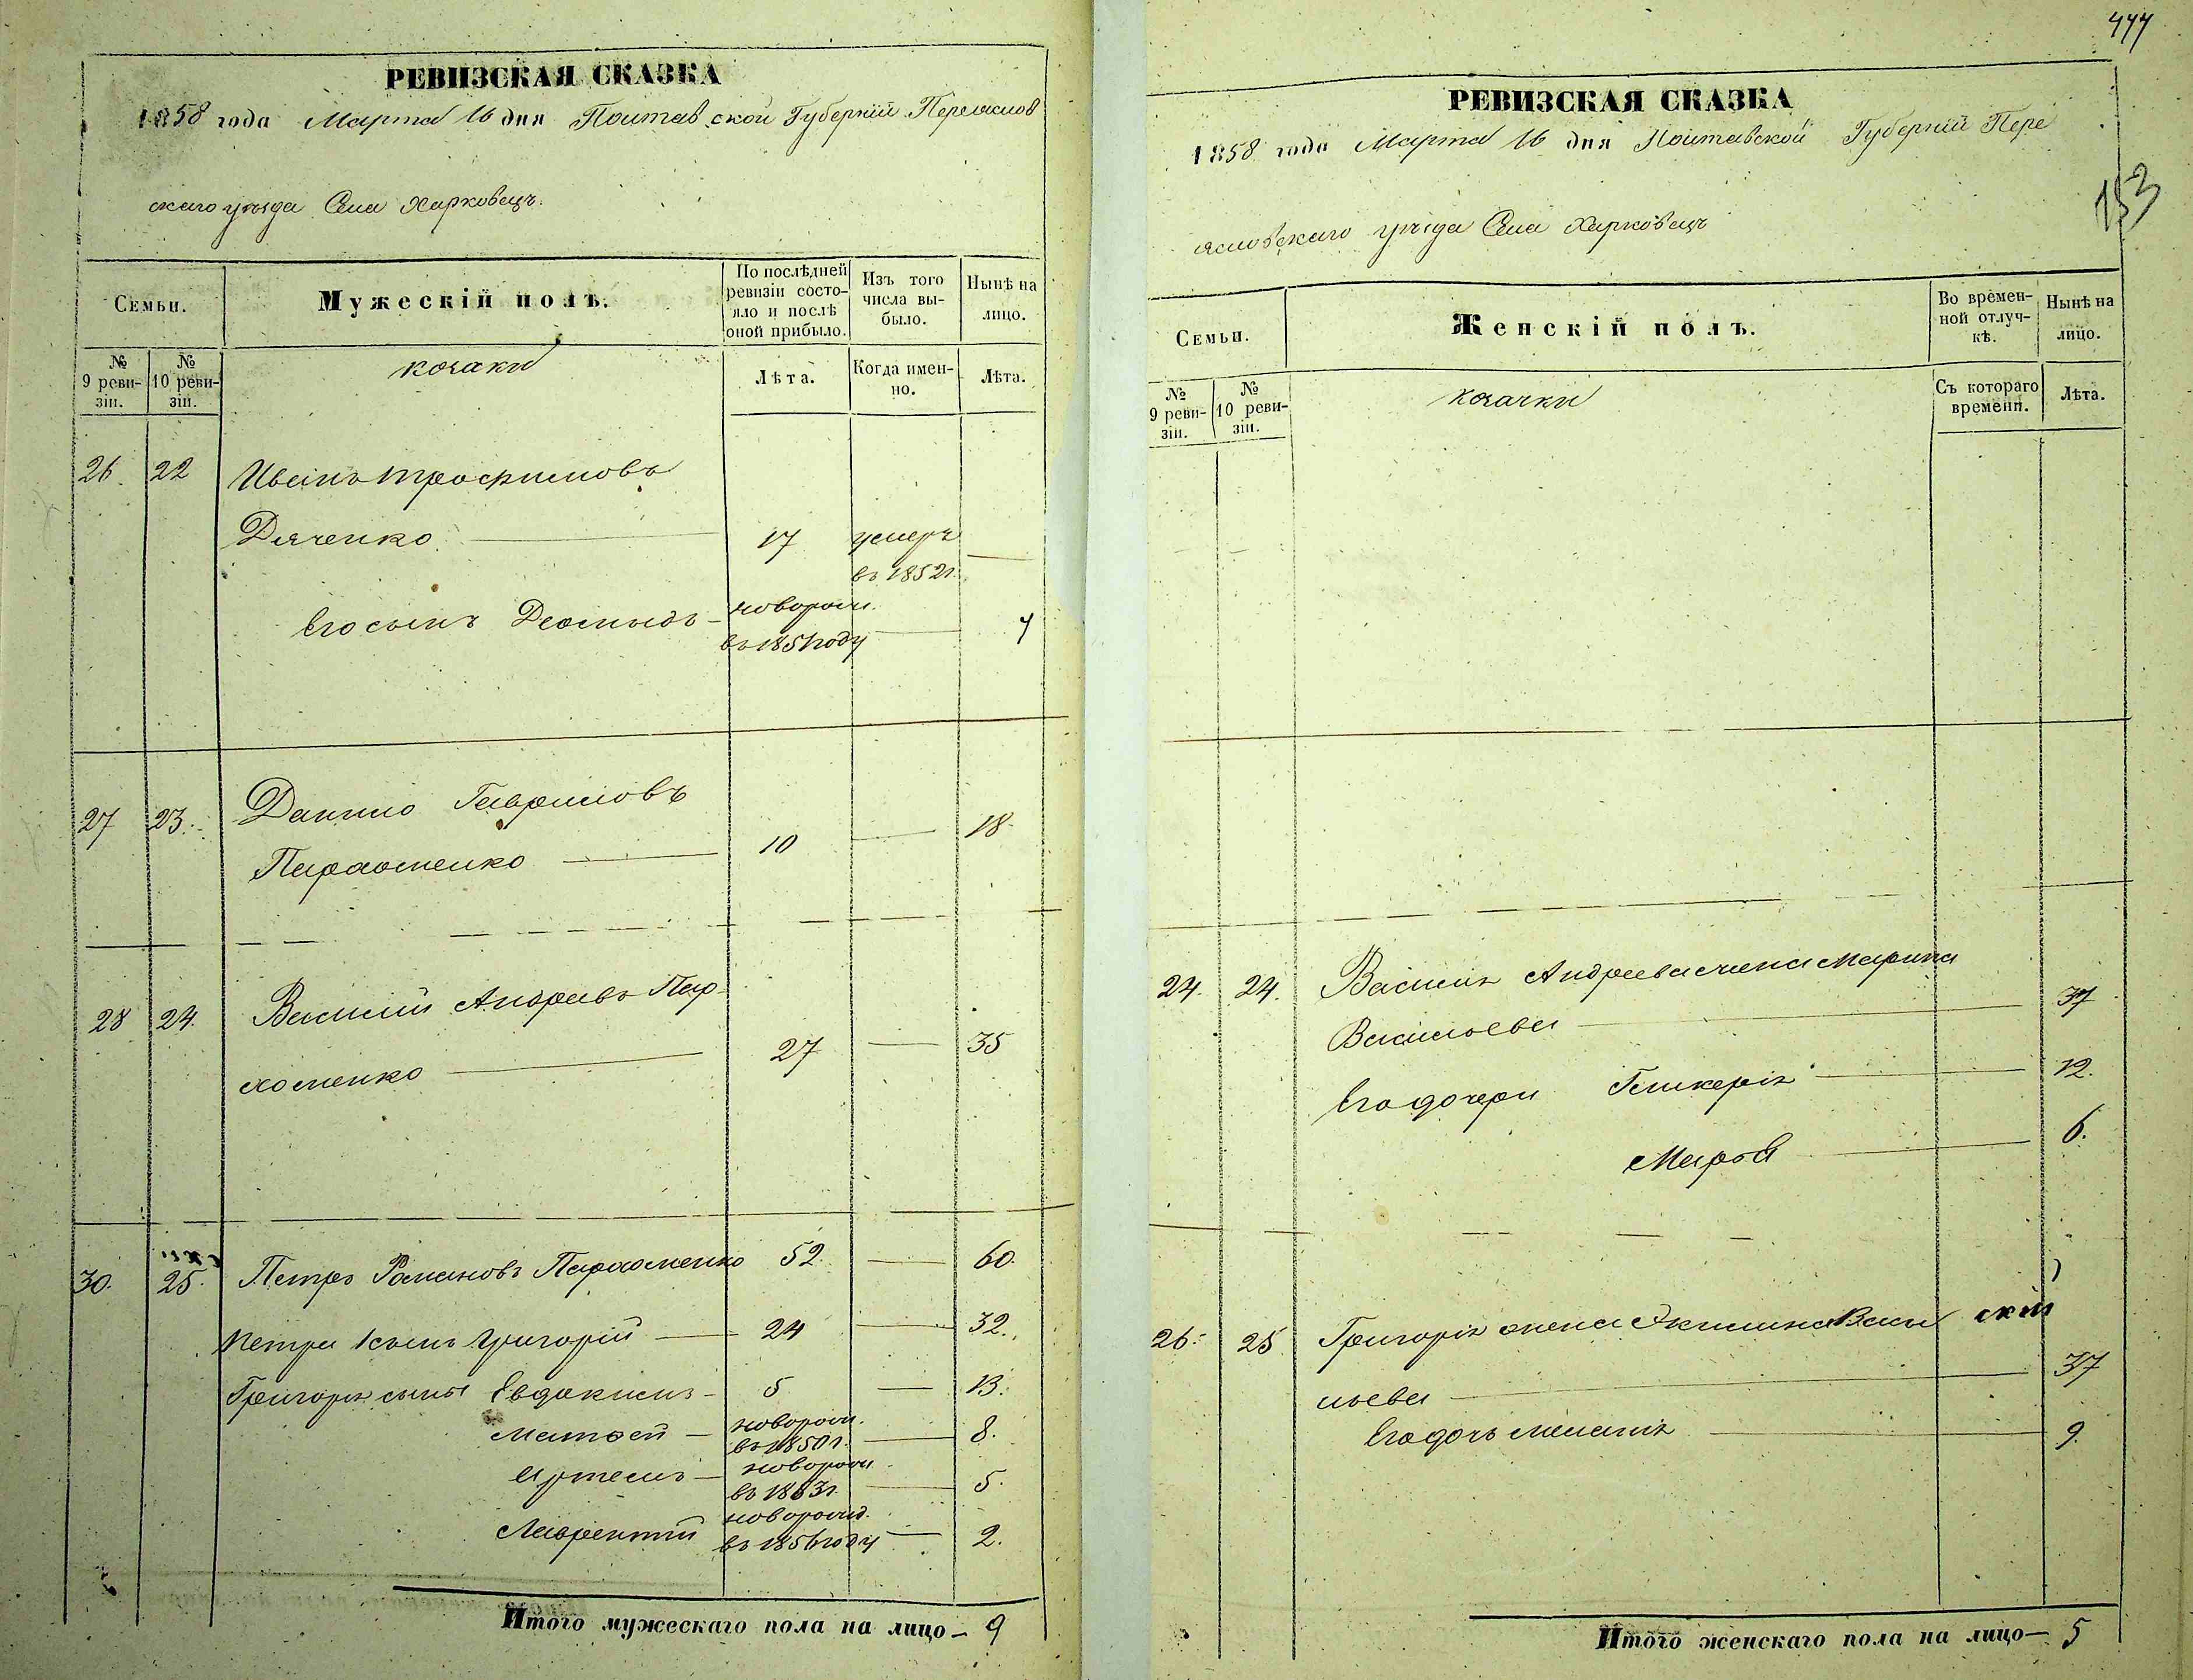 РЕВИЗСКАЯ СКАЗКА
1858 года Марта 16 дня Полтавской Губерніи Переяслов
скаго уѣзда Села Харковецъ.
Семьи.
Мужескій полъ.
По послѣдней ревизіи состо-
яло и послѣ оной прибыло.
Изъ того числа вы-
было.
Нынѣ на лицо.
№ 9 реви-
зіи.
№ 10 реви-
зіи.
козаки
Лѣта.
Когда имен-
но.
Лѣта.
26. 22 Иванъ Трофимовъ
Дяченко 17 умеръ
въ 1852 г.
Его сынъ Деомидъ новорож.
въ 1851 году 7
27 23. Данило Гавриловъ
Пархоменко 10 18
28 24. Василій Андреевъ Пар
хоменко 27 35
30. 25. Петръ Романовъ Пархоменко 52 60.
Петра 1 сынъ Григорій 24 32.
Григорія сыны Евдокимъ 5 13.
Матфей новорож.
въ 1850 г. 8.
Артемъ новорож
въ 1853 г. 5.
Лаврентій новорожд.
въ 1856 году 2.
Итого мужескаго пола на лицо — 9
477
153
РЕВИЗСКАЯ СКАЗКА
1858 года Марта 16 дня Полтавской Губерніи Пере
ясловскаго уѣзда Села Харковецъ
Семьи.
Женскій полъ.
Во времен-
ной отлуч-
кѣ.
Нынѣ на лицо.
№ 9 реви-
зіи.
№ 10 реви-
зіи.
козачки
Съ котораго времени.
Лѣта.
24. 24. Василія Андреева жена Марина
Васильева 37
Его дочери Гликерія 12.
Марфа 6.
26. 25 Григорія жена Акилина Васи
льева 37
Его дочь Меланія 9.
Итого женскаго пола на лицо — 5